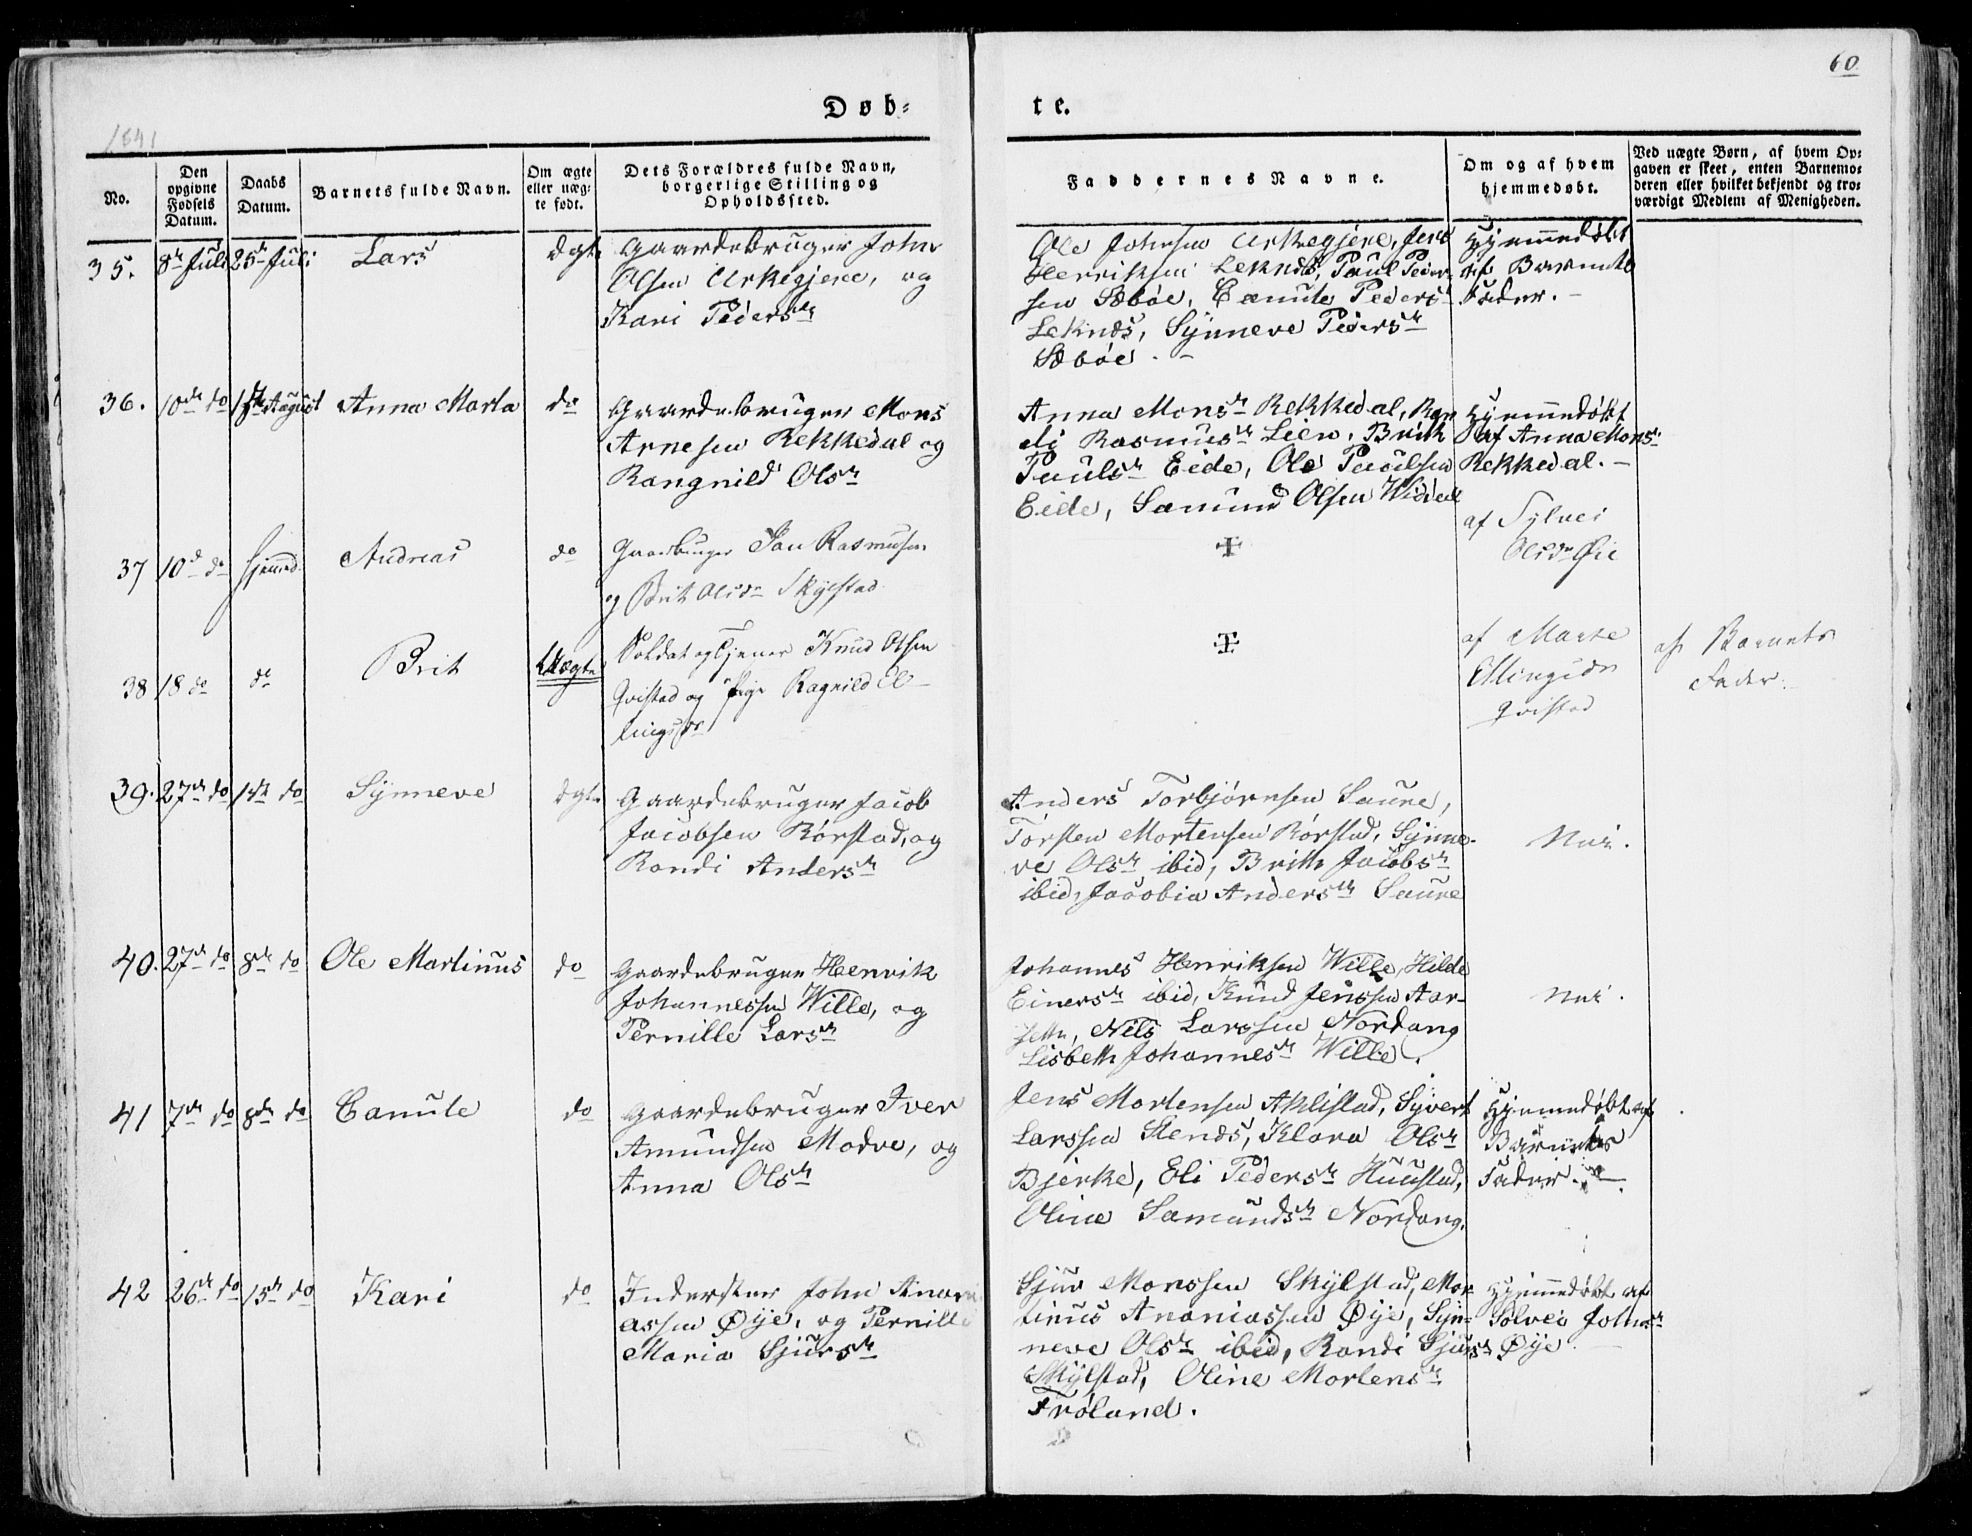 60
Døb-
te.
1841
No.
Den opgivne Fødsels Datum.
Daabs Datum.
Barnets fulde Navn.
Om ægte eller uægte født.
Dets Forældres fulde Navn, borgerlige Stilling og Opholdssted.
Faddernes Navne.
Om og af hvem hjemmedøbt.
Ved uægte Børn, af hvem Opgaven er skeet, enten Barnemoderen eller hvilket bekjendt og troværdigt Medlem af Menigheden.
35. 8de Juli 25de Juli Lars ægte
Gaardebruger John
Olsen Urkegjere, og
Kari Pedersdr
Ole Johnsen Urkegjere, Jens
Henriksen Leknes, Paul Peder-
sen Sæbøe, Canute Pedersdr
Leknæs, Synneve Pedersdr
Sæbøe. -
Hjemmedøbt
af Barnets
Fader. -
36. 10de do August Anna Marta do
Gaardebruger Mons
Arnesen Rekkedal og
Rangnild Olsdr
Anna Monsdr Rekkedal, Ran-
di Rasmusdr Lien, Brith
Paulsdr Eide, Ole Paulsen
Eide, Samund Olsen Widdal
Hjemmedøbt
af Anna Monsdr
Rekkedal. -
37 10d do hjemmed. Andreas do
Gaardbruger Jan Rasmusen
og Brit Olsdr Skylstad
+
af Sylvei
Olsdr Øie
38 18 do do Brit Uægte
Soldat og Tjener Knud Olsen
Qvistad og Pige Ragnild El-
lingsdr
+
af Marte
Ellingsdr
Qvistad
af Barnets
Fader.
39. 27de do 1ste do Synneve ægte
Gaardebruger Jacob
Jacobsen Rørstad, og
Randi Andersdr
Anders Torbjørnsen Saure,
Torsten Mortensen Rørstad, Synne-
ve Olsdr ibid, Brith Jacobsdr
ibid, Jacobia Andersdr Saure
Nei.
40. 27de do 8de do Ole Martinus do
Gaardebruger Henrik
Johannessen Wille, og
Pernille Larsdr
Johannes Henriksen Wille, Hilde
Einersdr ibid, Knud Jenssen Aar-
seth, Nils Larssen Nordang
Lisbeth Johannesdr Wille.
Nei.
41 7de do 8de do Canute do
Gaardebruger Iver
Amundsen Modve, og
Anna Olsdr
Jens Mortensen Aklistad, Syvert
Larssen Stenæs, Klara Olsdr
Bjerke, Eli Pedersdr Huustad,
Oline Samundsdr Nordang.
Hjemmedøbt af
Barnets
Fader. -
42 26de do 15de do Kari do
Inderster John Anani-
assen Øye, og Pernille
Maria Sjursdr
Sjur Monssen Skylstad, Mar-
tinus Ananiassen Øye, Syn-
neve Olsdr ibid, Randi Sjursdr
Skylstad, Oline Mortensdr
Frøland.
Hjemmedøbt af
Solvei Johnsdr
Øye. -